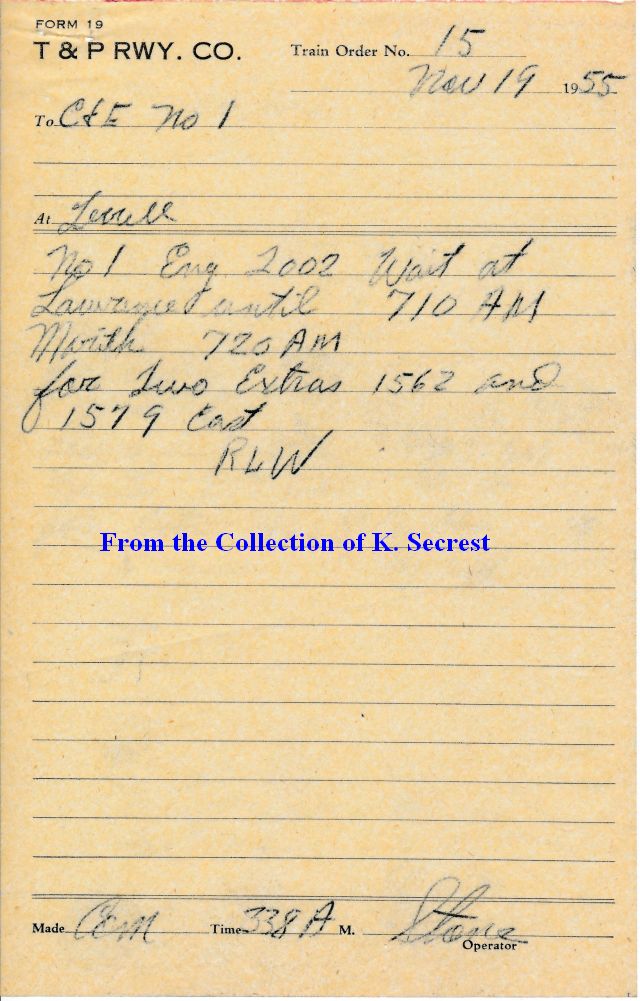 FORM 19
T & P RWY. CO.
Train Order No. 15
Nov 19 1955
To C&E No 1
At Terrell
No 1 Eng 2002 Wait at
Lawrence until 710 AM
740 AM
for Two Extras 1562 and
1579 East
RLW
From the Collection of K. Secrest
Made Com Time 338 A M. Stone
Operator